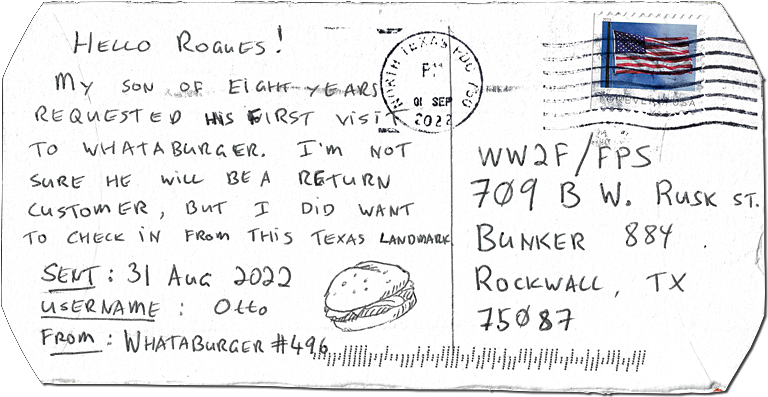 HELLO ROGUES!
MY SON OF EIGHT YEARS
REQUESTED HIS FIRST VISIT
TO WHATABURGER. I'M NOT
SURE HE WILL BE A RETURN
CUSTOMER, BUT I DID WANT
TO CHECK IN FROM THIS TEXAS LANDMARK
SENT: 31 AUG 2022
USERNAME: Otto
FROM: WHATABURGER #496
NORTH TEXAS PDC 750
PM
01 SEP
2022
FOREVER USA
WW2F/FPS
709 B W. RUSK ST.
BUNKER 884
ROCKWALL, TX
75087